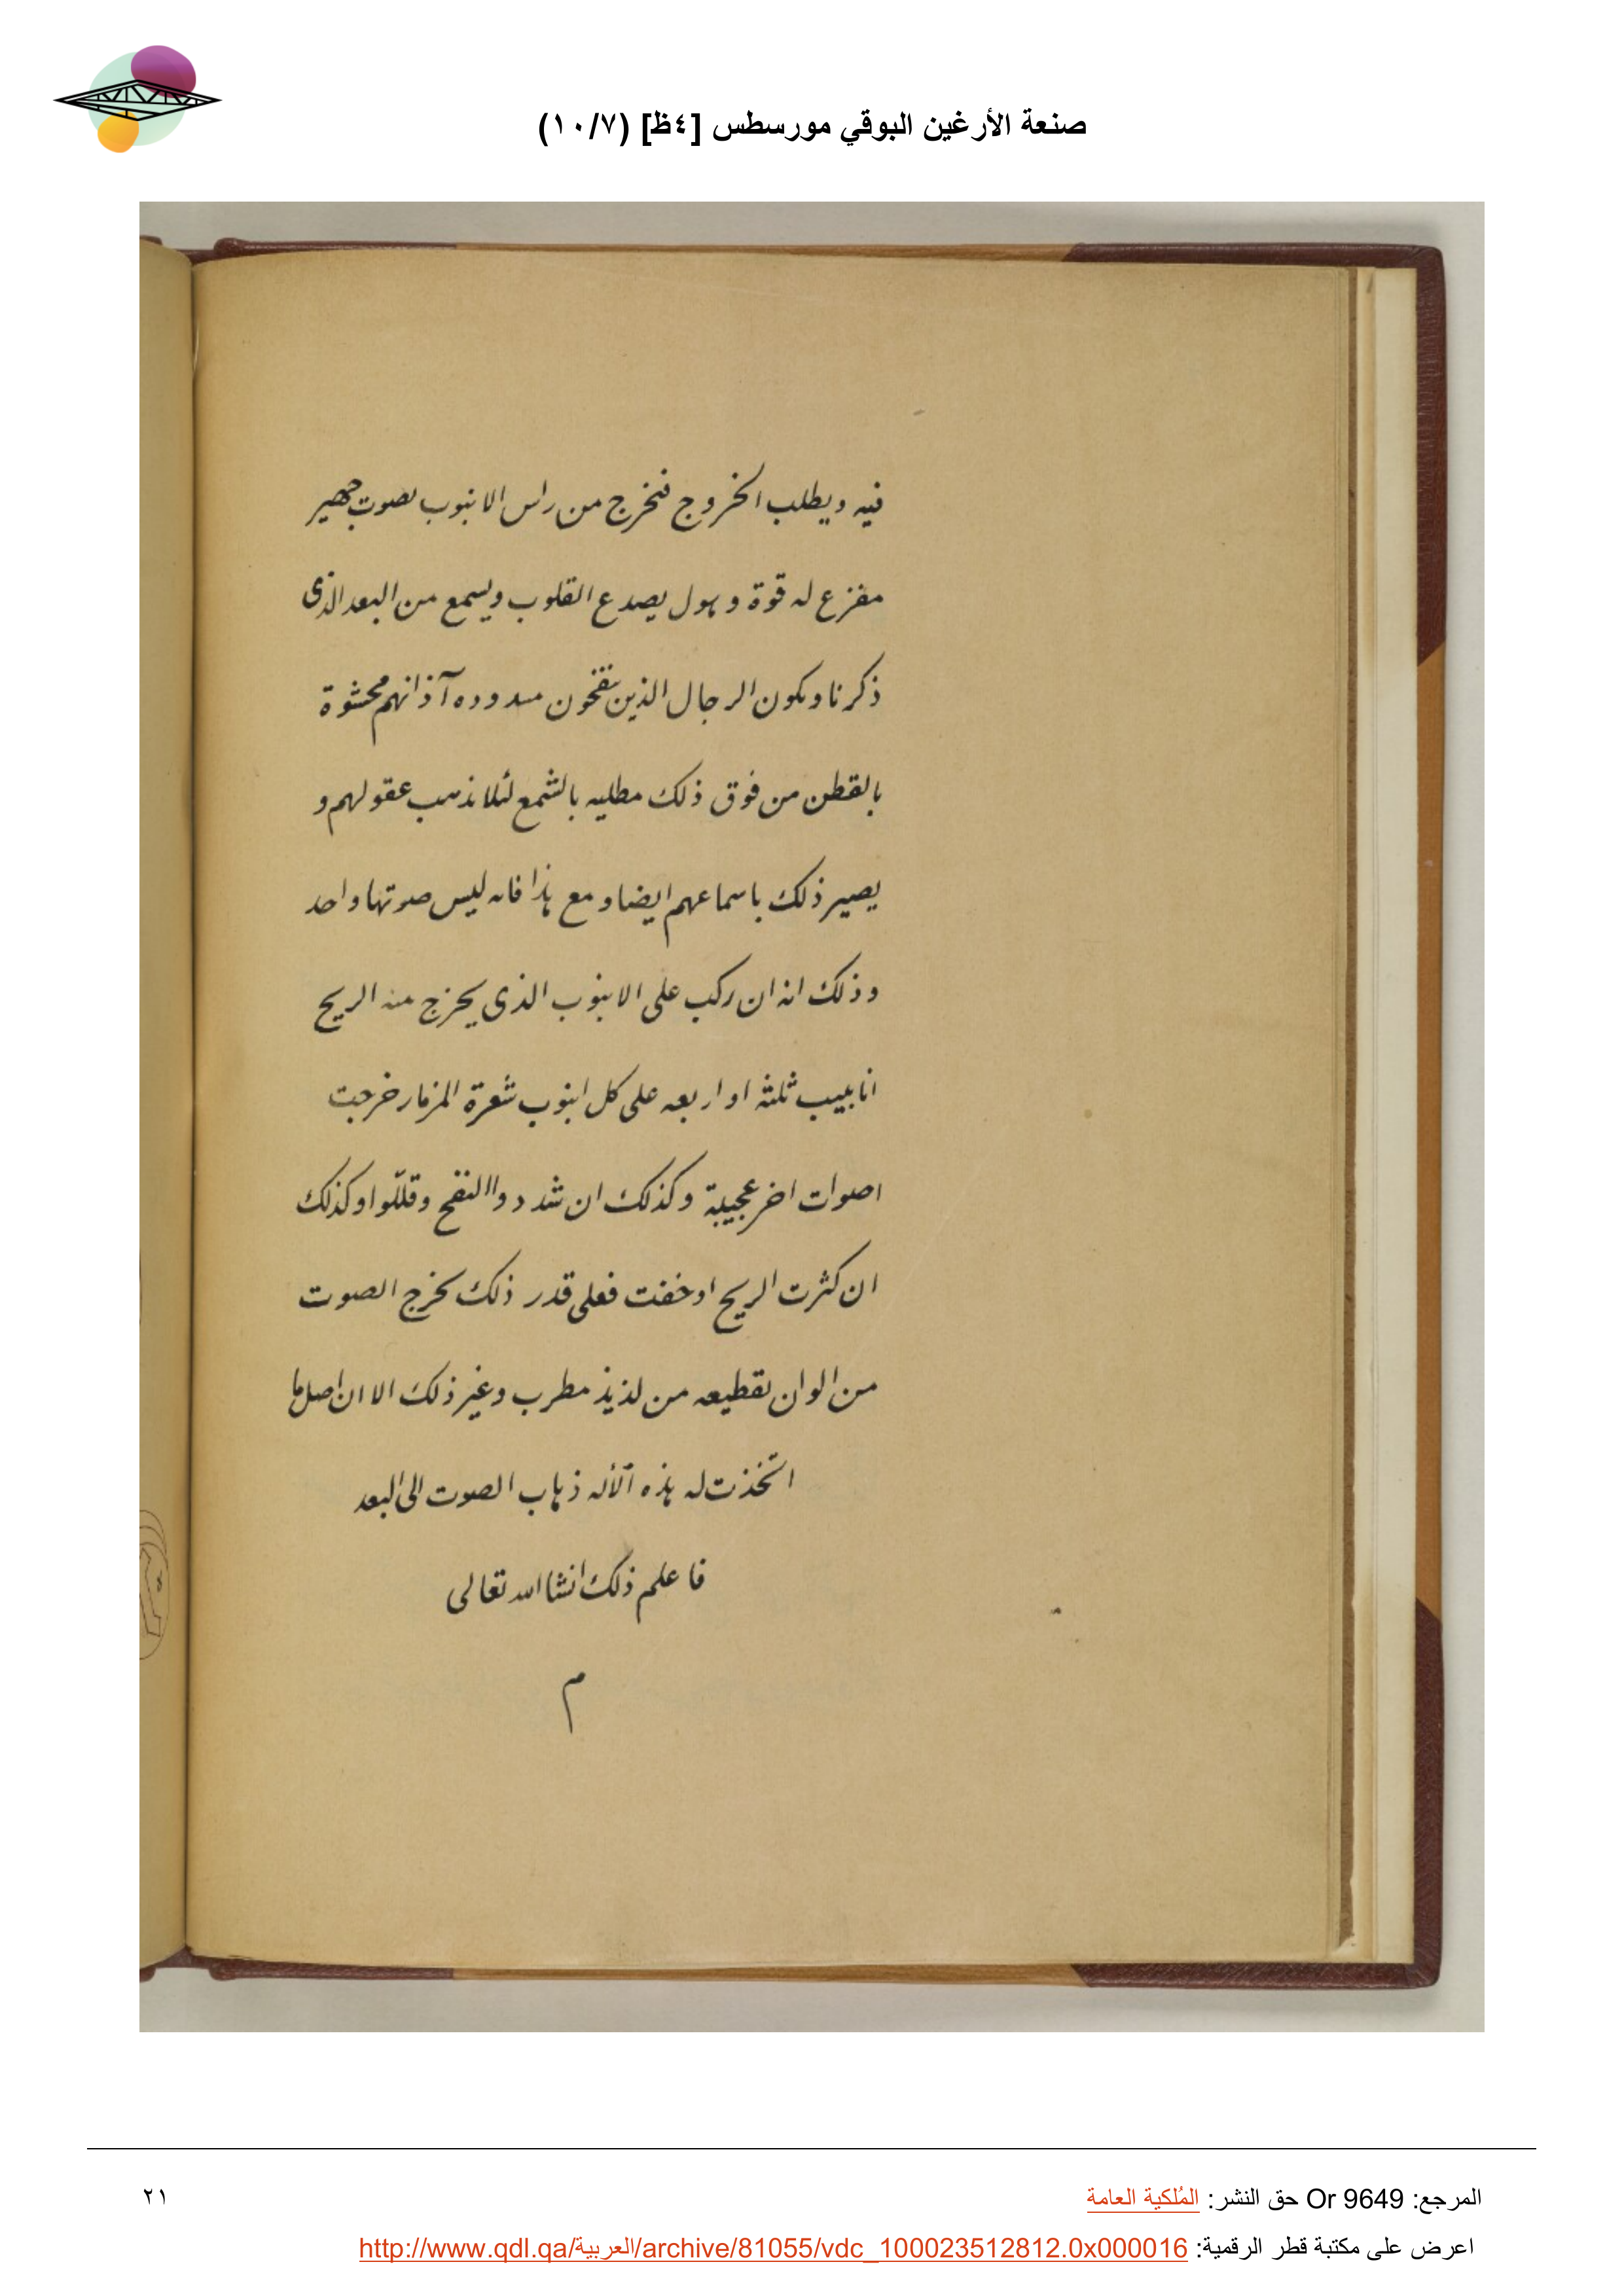 صنعة الأرغين البوقي مورسطس [٤ظ] (١٠/٧)
فيه ويطلب الخروج فيخرج من راس الانبوب بصوت جهير
مفزع له قوة وهول يصدع القلوب ويسمع من البعد الذى
ذكرنا ويكون الرجال الذين ينفخون مسدوده آذانهم محشوة
بالقطن من فوق ذلك مطليه بالشمع لئلا تذهب عقولهم و
يصير ذلك باسماعهم ايضا ومع هذا فانه ليس صوتها واحد
وذلك انه ان ركب على الانبوب الذى يخرج منه الريح
انابيب ثلثة او اربعه على كل انبوب شعرة المزمار خرجت
اصوات اخر عجيبة وكذلك ان شددوا النفخ وقللوا وكذلك
ان كثرت الريح او خفت فعلى قدر ذلك يخرج الصوت
من الوان تقطيعه من لذيذ مطرب وغير ذلك الا ان اصل ما
اتخذت له هذه الآله ذهاب الصوت الى البعد
فاعلم ذلك انشا الله تعالى
م
المرجع: Or 9649 حق النشر: المُلكية العامة
٢١
اعرض على مكتبة قطر الرقمية: http://www.qdl.qa/العربية/archive/81055/vdc_100023512812.0x000016